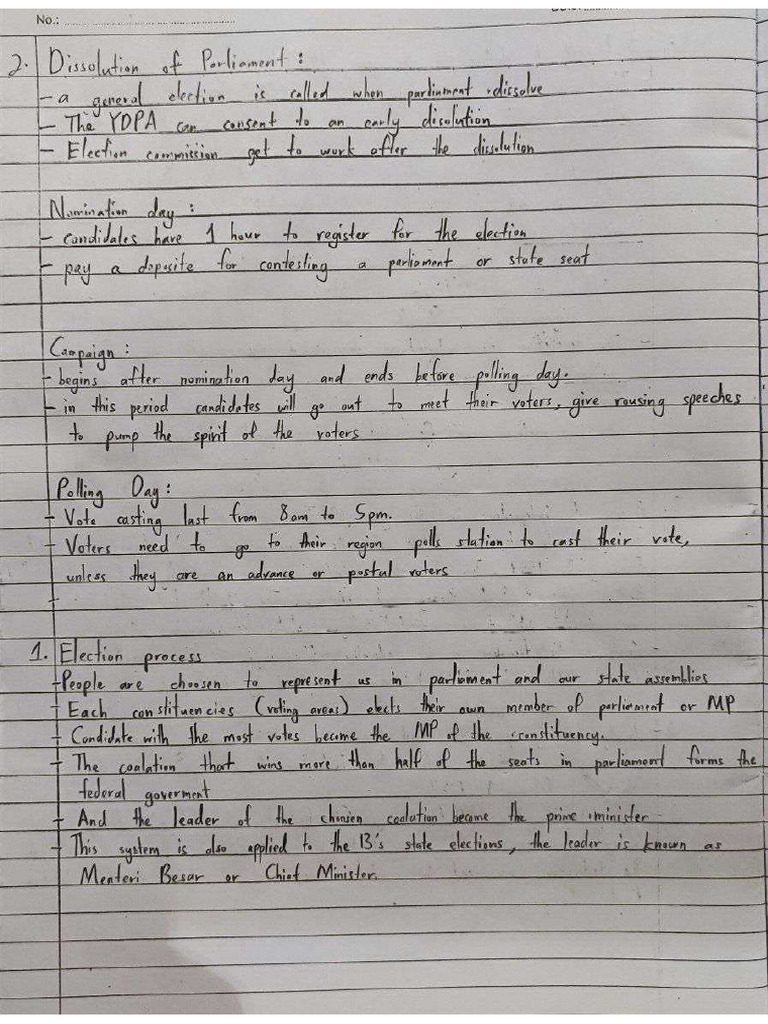 No.:
2. Dissolution of Parliament :
- a general election is called when parliament dissolve
- The YDPA can consent to an early disolution
- Election commission get to work after the dissolution
Nomination day :
- candidates have 1 hour to register for the election
- pay a deposite for contesting a parliament or state seat
Campaign :
- begins after nomination day and ends before polling day.
- in this period candidates will go out to meet their voters, give rousing speeches
to pump the spirit of the voters.
Polling Day :
- Vote casting last from 8am to 5pm.
- Voters need to go to their region polls station to cast their vote,
unless they are an advance or postal voters
1. Election process
- People are choosen to represent us in parliament and our state assemblies
- Each constituencies (voting areas) elects their own member of parliament or MP
- Candidate with the most votes become the MP of the constituency.
- The coalation that wins more than half of the seats in parliament forms the
federal goverment
- And the leader of the chosen coalation become the prime minister
- This system is also applied to the 13's state elections, the leader is known as
Menteri Besar or Chief Minister.